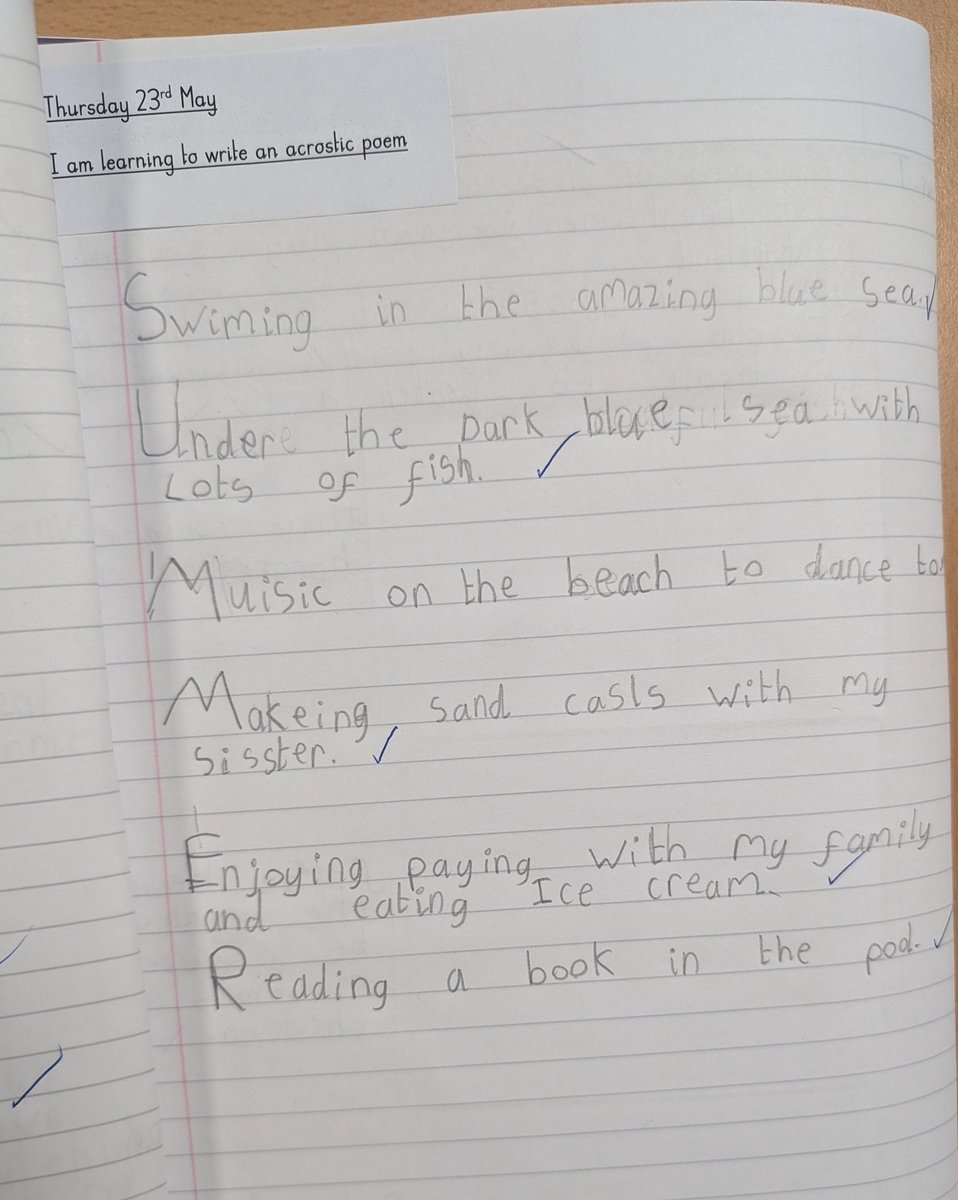 Thursday 23rd May
I am learning to write an acrostic poem
Swiming in the amazing blue sea.
Undere the Dark blue sea with
Lots of fish.
Muisic on the beach to dance to.
Makeing sand casls with my
sisster.
Enjoying paying with my family
and eating Ice cream.
Reading a book in the pool.